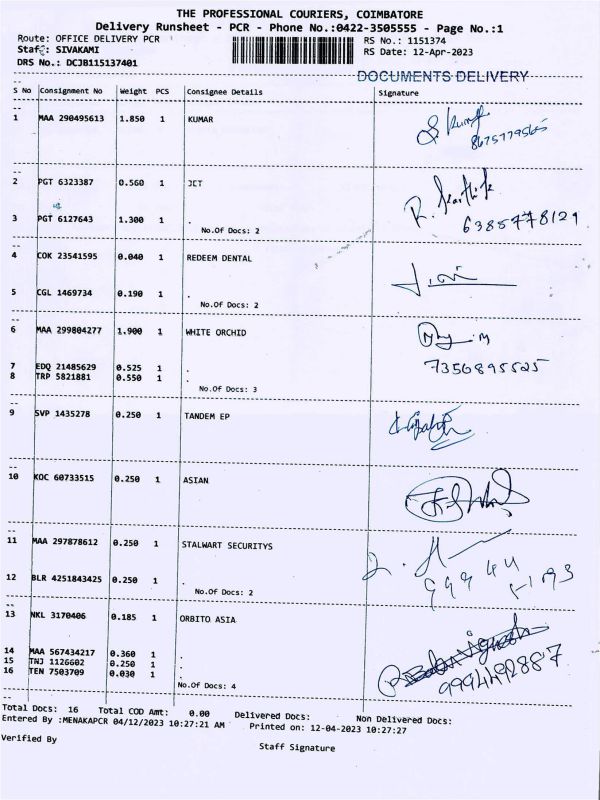 THE PROFESSIONAL COURIERS, COIMBATORE
Delivery Runsheet - PCR - Phone No.:0422-3505555 - Page No.:1
Route: OFFICE DELIVERY PCR
RS No.: 1151374
Staff: SIVAKAMI
RS Date: 12-Apr-2023
DRS No.: DCJB115137401
DOCUMENTS DELIVERY
S No Consignment No Weight PCS Consignee Details Signature
1 MAA 290495613 1.850 1 KUMAR
2 PGT 6323387 0.560 1 JET
3 PGT 6127643 1.300 1 .
6385778129
No.Of Docs: 2
4 COK 23541595 0.040 1 REDEEM DENTAL
5 CGL 1469734 0.190 1 .
No.Of Docs: 2
6 MAA 299804277 1.900 1 WHITE ORCHID
7 EDQ 21485629 0.525 1 .
7356895525
8 TRP 5821881 0.550 1 .
No.Of Docs: 3
9 SVP 1435278 0.250 1 TANDEM EP
10 KOC 60733515 0.250 1 ASIAN
11 MAA 297878612 0.250 1 STALWART SECURITYS
12 BLR 4251843425 0.250 1 .
No.Of Docs: 2
13 NKL 3170406 0.185 1 ORBITO ASIA
14 MAA 567434217 0.360 1 .
15 TNJ 1126602 0.250 1 .
16 TEN 7503709 0.030 1 .
9994492887
No.Of Docs: 4
Total Docs: 16 Total COD Amt: 0.00 Delivered Docs: Non Delivered Docs:
Entered By :MENAKAPCR 04/12/2023 10:27:21 AM Printed on: 12-04-2023 10:27:27
Verified By
Staff Signature